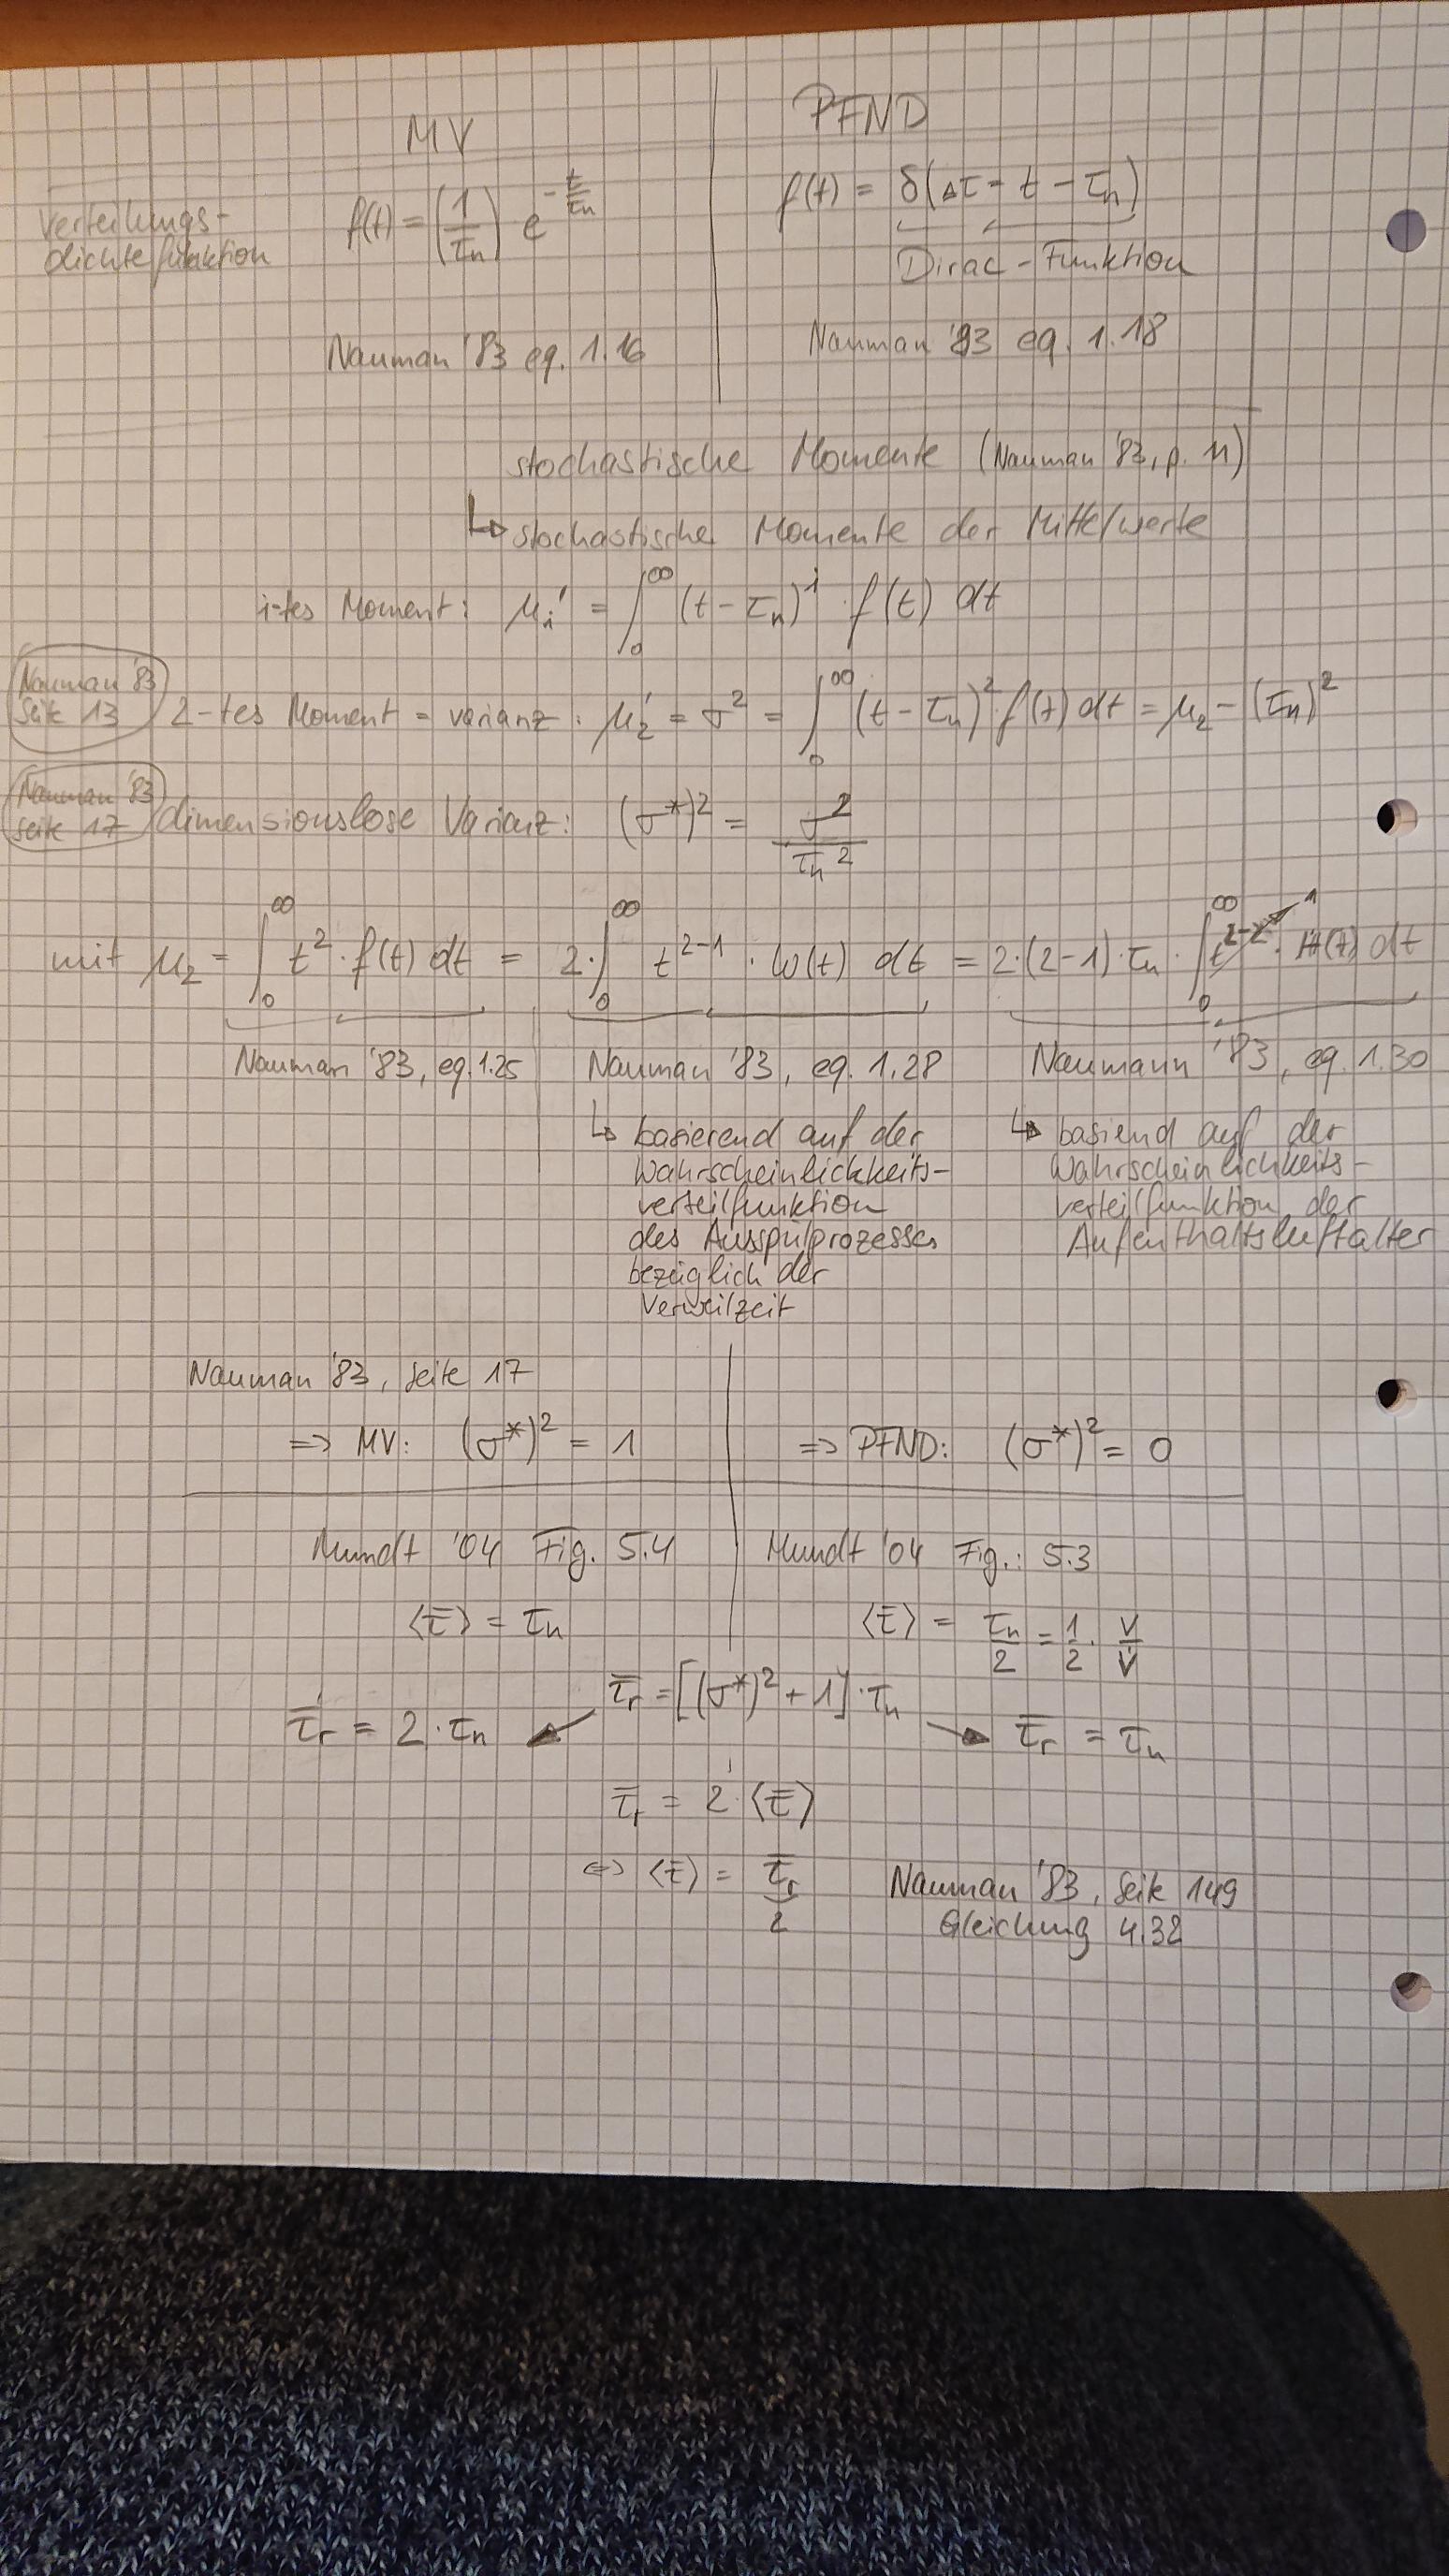 MV
PFND
Verteilungs-
dichtefunktion
f(t) = (1/τn) · e^(-t/τn)
f(t) = δ(Δτ = t - τn)
Dirac-Funktion
Nauman '83 eq. 1.16
Nauman '83 eq. 1.18
stochastische Momente (Nauman '83, p. 11)
↳ stochastische Momente der Mittelwerte
i-tes Moment: μi' = ∫₀^∞ (t - τn)^i · f(t) dt
Nauman '83
Seite 13
2-tes Moment = varianz: μ2' = σ² = ∫₀^∞ (t - τn)² f(t) dt = μ2 - (τn)²
Nauman '83
Seite 17
dimensionslose Varianz: (σ*)² = σ²/τn²
mit μ2 = ∫₀^∞ t² · f(t) dt = 2·∫₀^∞ t^(2-1) · W(t) dt = 2·(2-1)·τn · ∫₀^∞ t^(2-2) → 1 · H(t) dt
Nauman '83, eq. 1.25
Nauman '83, eq. 1.28
Naumann '83, eq. 1.30
↳ basierend auf der
Wahrscheinlickkeits-
verteilfunktion
des Ausspülprozesses
bezüglich der
Verweilzeit
↳ basiend auf der
Wahrscheinlichkeits-
verteilfunktion der
Aufenthaltsluftalter
Nauman '83, Seite 17
=> MV: (σ*)² = 1
=> PFND: (σ*)² = 0
Mundt '04 Fig. 5.4
Mundt '04 Fig.: 5.3
⟨τ̄⟩ = τn
⟨τ̄⟩ = τn/2 = 1/2 · V/V̇
τ̄r = [(σ*)² + 1] · τn
τ̄r = 2 · τn
τ̄r = τn
τ̄r = 2 · ⟨τ̄⟩
<=> ⟨τ̄⟩ = τ̄r/2
Nauman '83, Seite 149
Gleichung 4.32